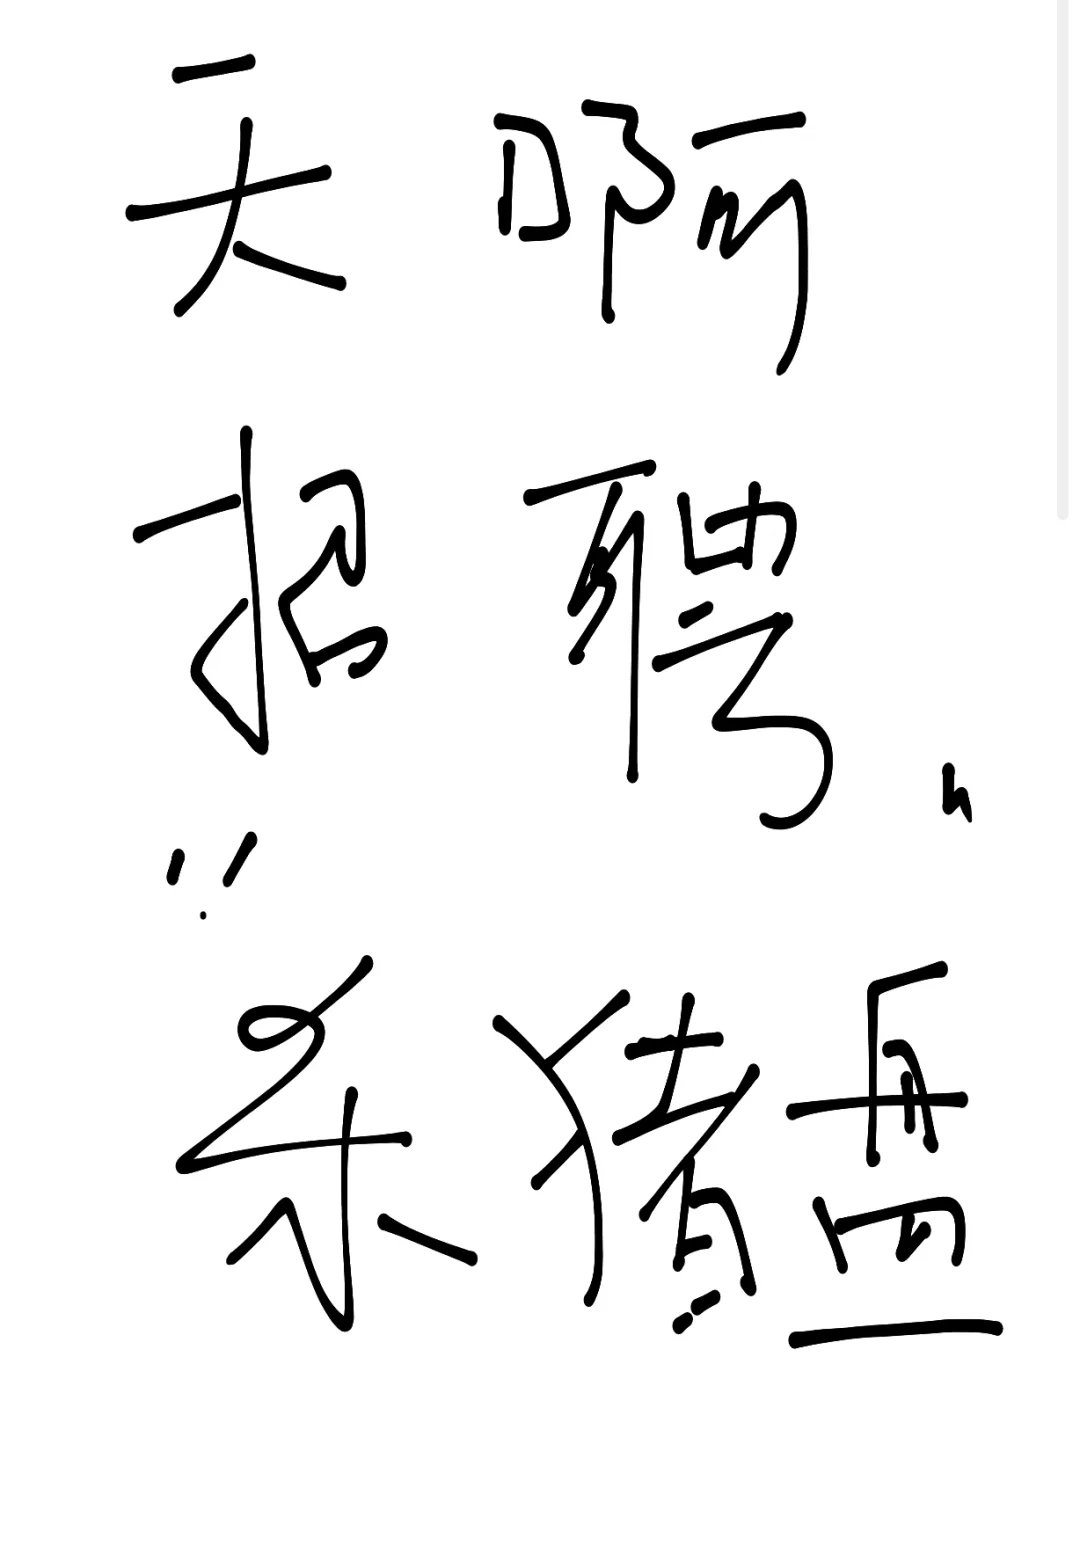 天啊
招聘
“杀猪盘”